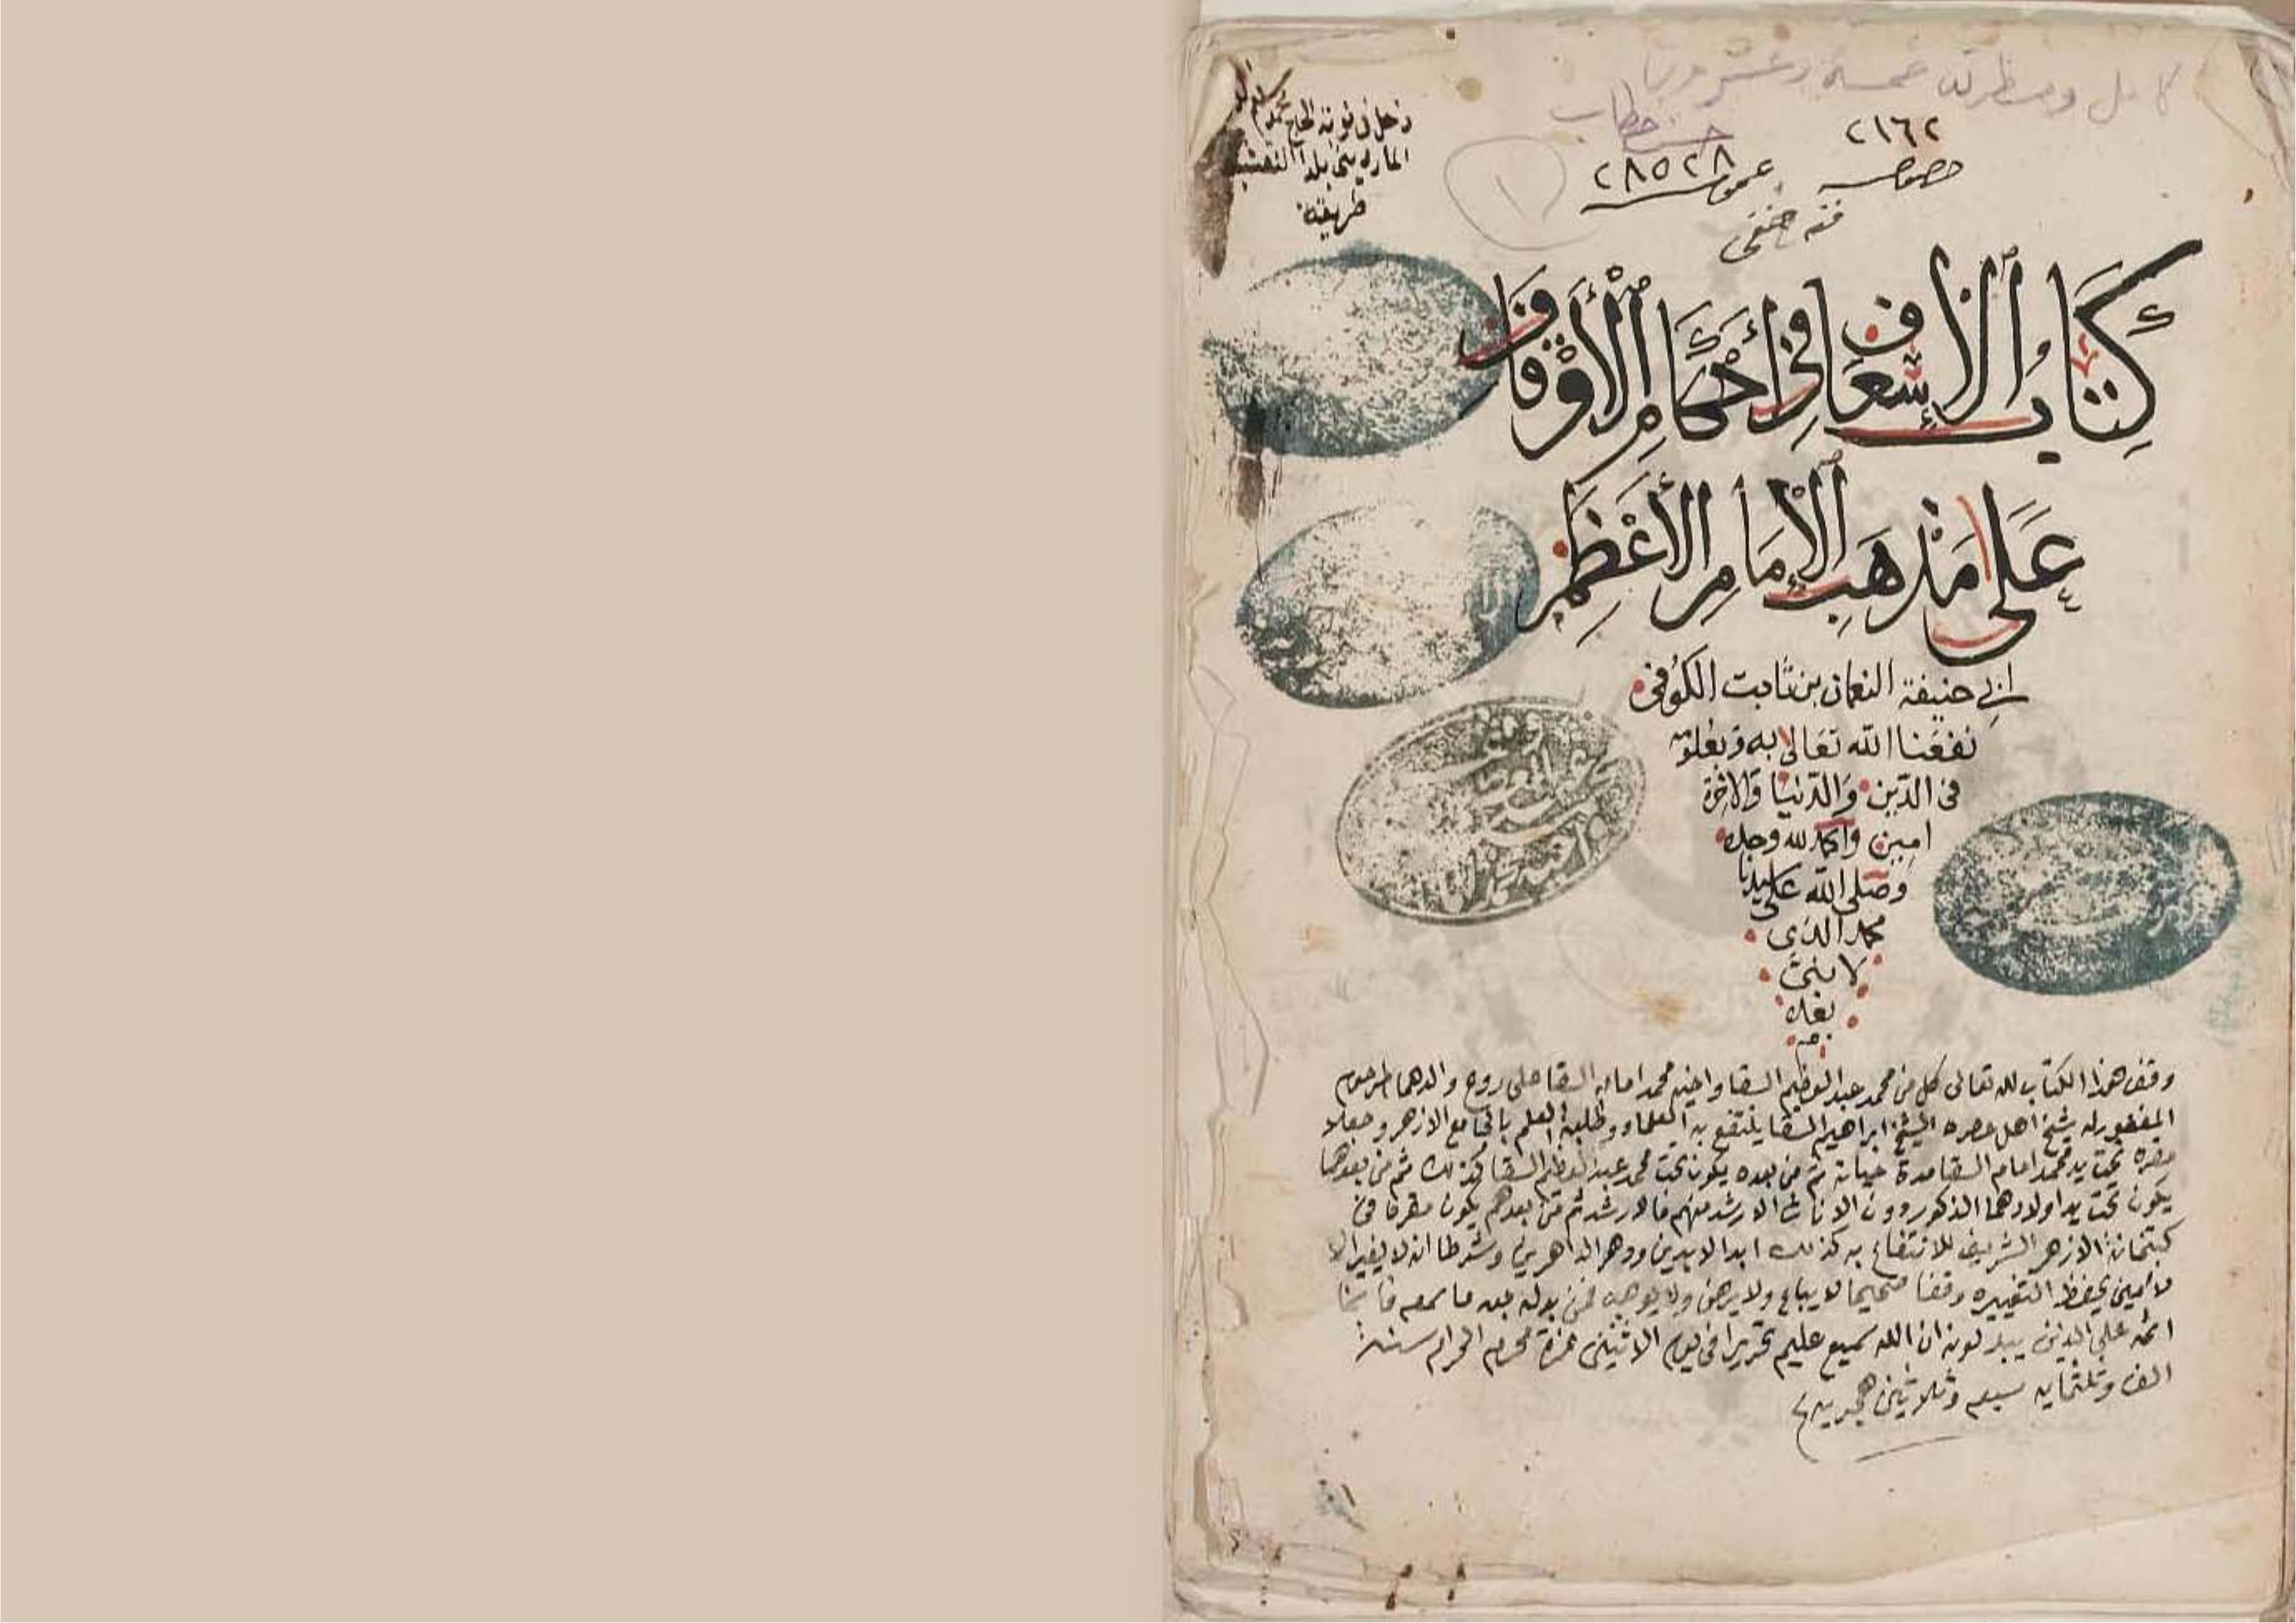 كامل ومسطرته خمسة وعشرون
حسن خطاب
٢١٦٢
خصوصية
٢٨٥٢٨
عمومية
١
فقه حنفي
دخل في نوبة الحاج محمد
المارديني بلدا النقشبندي
طريقة
كِتَابُ الْإِسْعَافِ فِي أَحْكَامِ الْأَوْقَافِ
عَلَى مَذْهَبِ الْإِمَامِ الْأَعْظَمِ
ابي حنيفة النعمان بن ثابت الكوفي
نفعنا الله تعالى به وبعلومه
في الدين والدنيا والاخرة
امين والحمد لله وحده
وصلى الله على سيدنا
محمد الذي
لا نبي
بعده
وقف هذا الكتاب لله تعالى كل من محمد عبد العظيم السقا واخيه محمد امام السقا على روح والدهما المرحوم
المغفور له شيخ اهل عصره الشيخ ابراهيم السقا ينتفع به العلماء وطلبة العلم بالجامع الازهر وجعلا
مقره تحت يد محمد امام السقا مدة حياته ثم من بعده يكون تحت محمد عبد العظيم السقا كذلك ثم من بعدهما
يكون تحت يد اولادهما الذكور دون الاناث الارشد منهم فالارشد ثم من بعدهم يكون مقره في
كتبخانة الازهر الشريف للانتفاع به كذلك ابد الابدين ودهر الداهرين وشرطا انه لا يغير الا
لامين يحفظ التغييره وقفا صحيحا لا يباع ولا يرهن ولا يوهب فمن بدله بعد ما سمعه فانما
اثمه على الذين يبدلونه ان الله سميع عليم تحريرا في يوم الاثنين غرة محرم الحرام سنة
الف وثلثماية سبعه وثلاثين هجرية